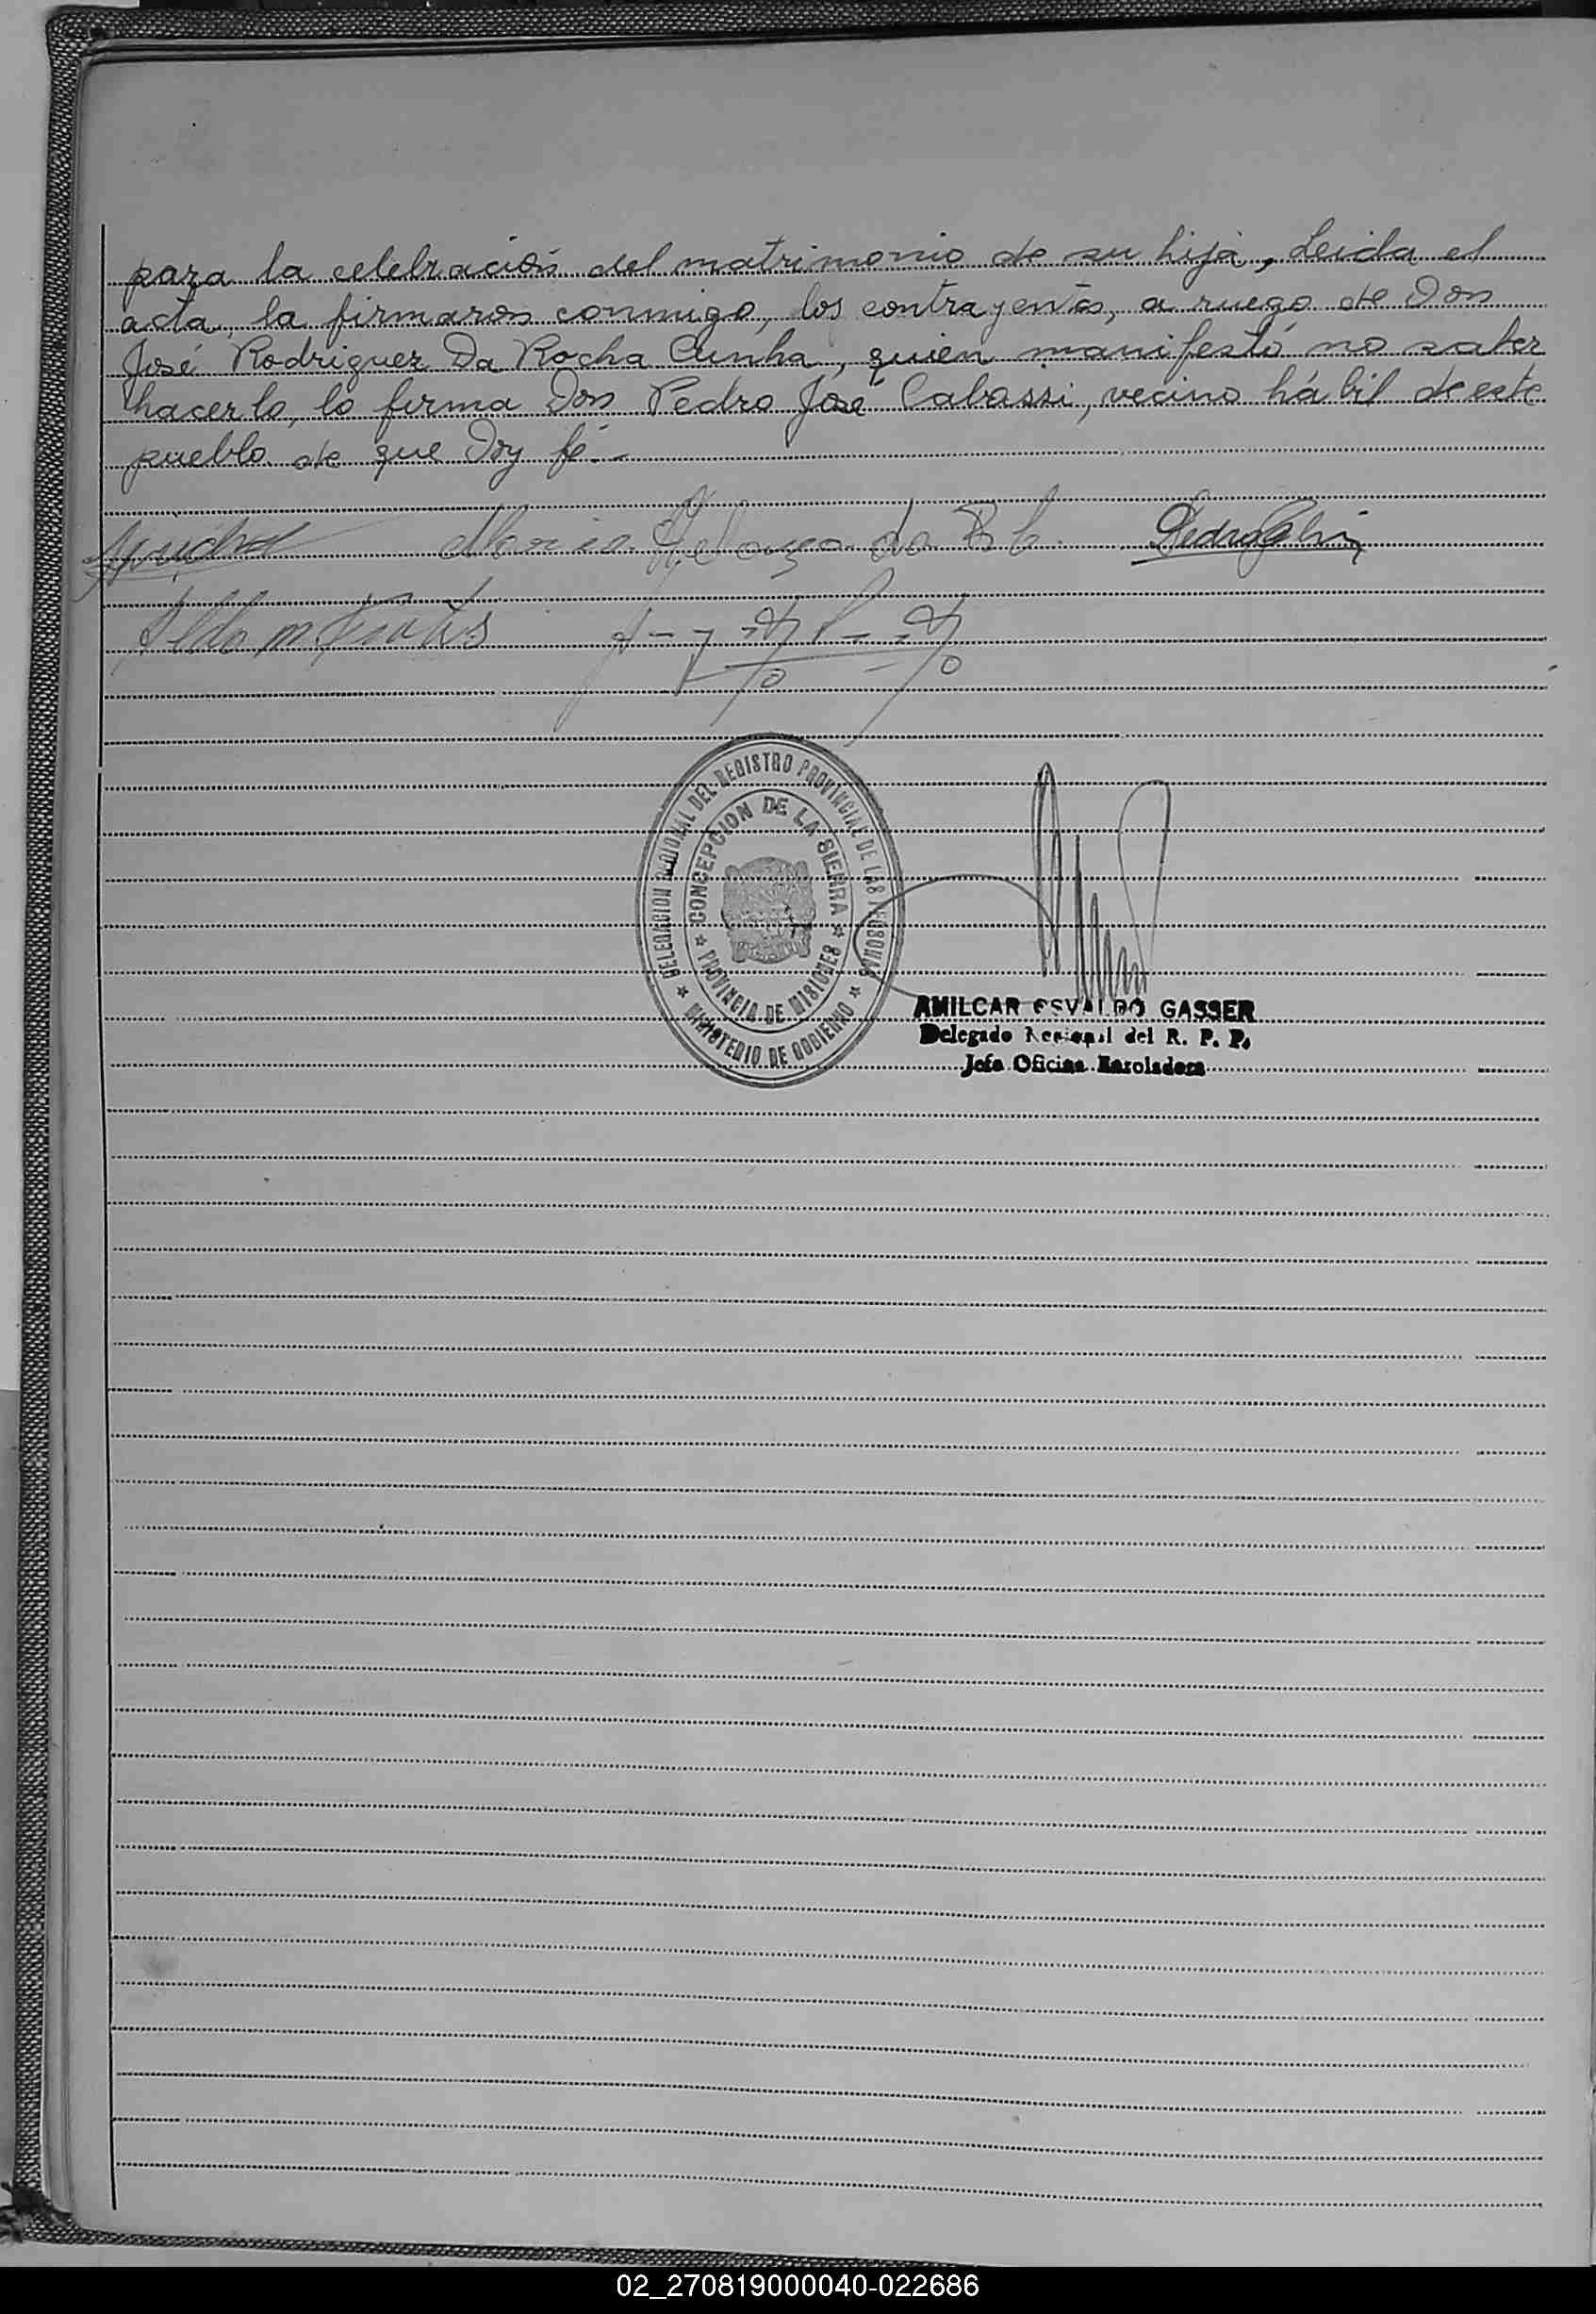 para la celebración del matrimonio de su hija, Leida el
acta, la firmaron conmigo, los contrayentes, a ruego de Don
José Rodriguez Da Rocha Cunha, quien manifestó no saber
hacerlo, lo firma Don Pedro José Cabassi, vecino hábil de este
pueblo de que Doy fé.-
Maria da R C. Pedro
Aldo m
DELEGACION REGIONAL DEL REGISTRO PROVINCIAL DE LAS PERSONAS
CONCEPCION DE LA SIERRA
PROVINCIA DE MISIONES
MINISTERIO DE GOBIERNO
AMILCAR OSVALDO GASSER
Delegado Regional del R. P. P.
Jefe Oficina Enroladora
02_270819000040-022686